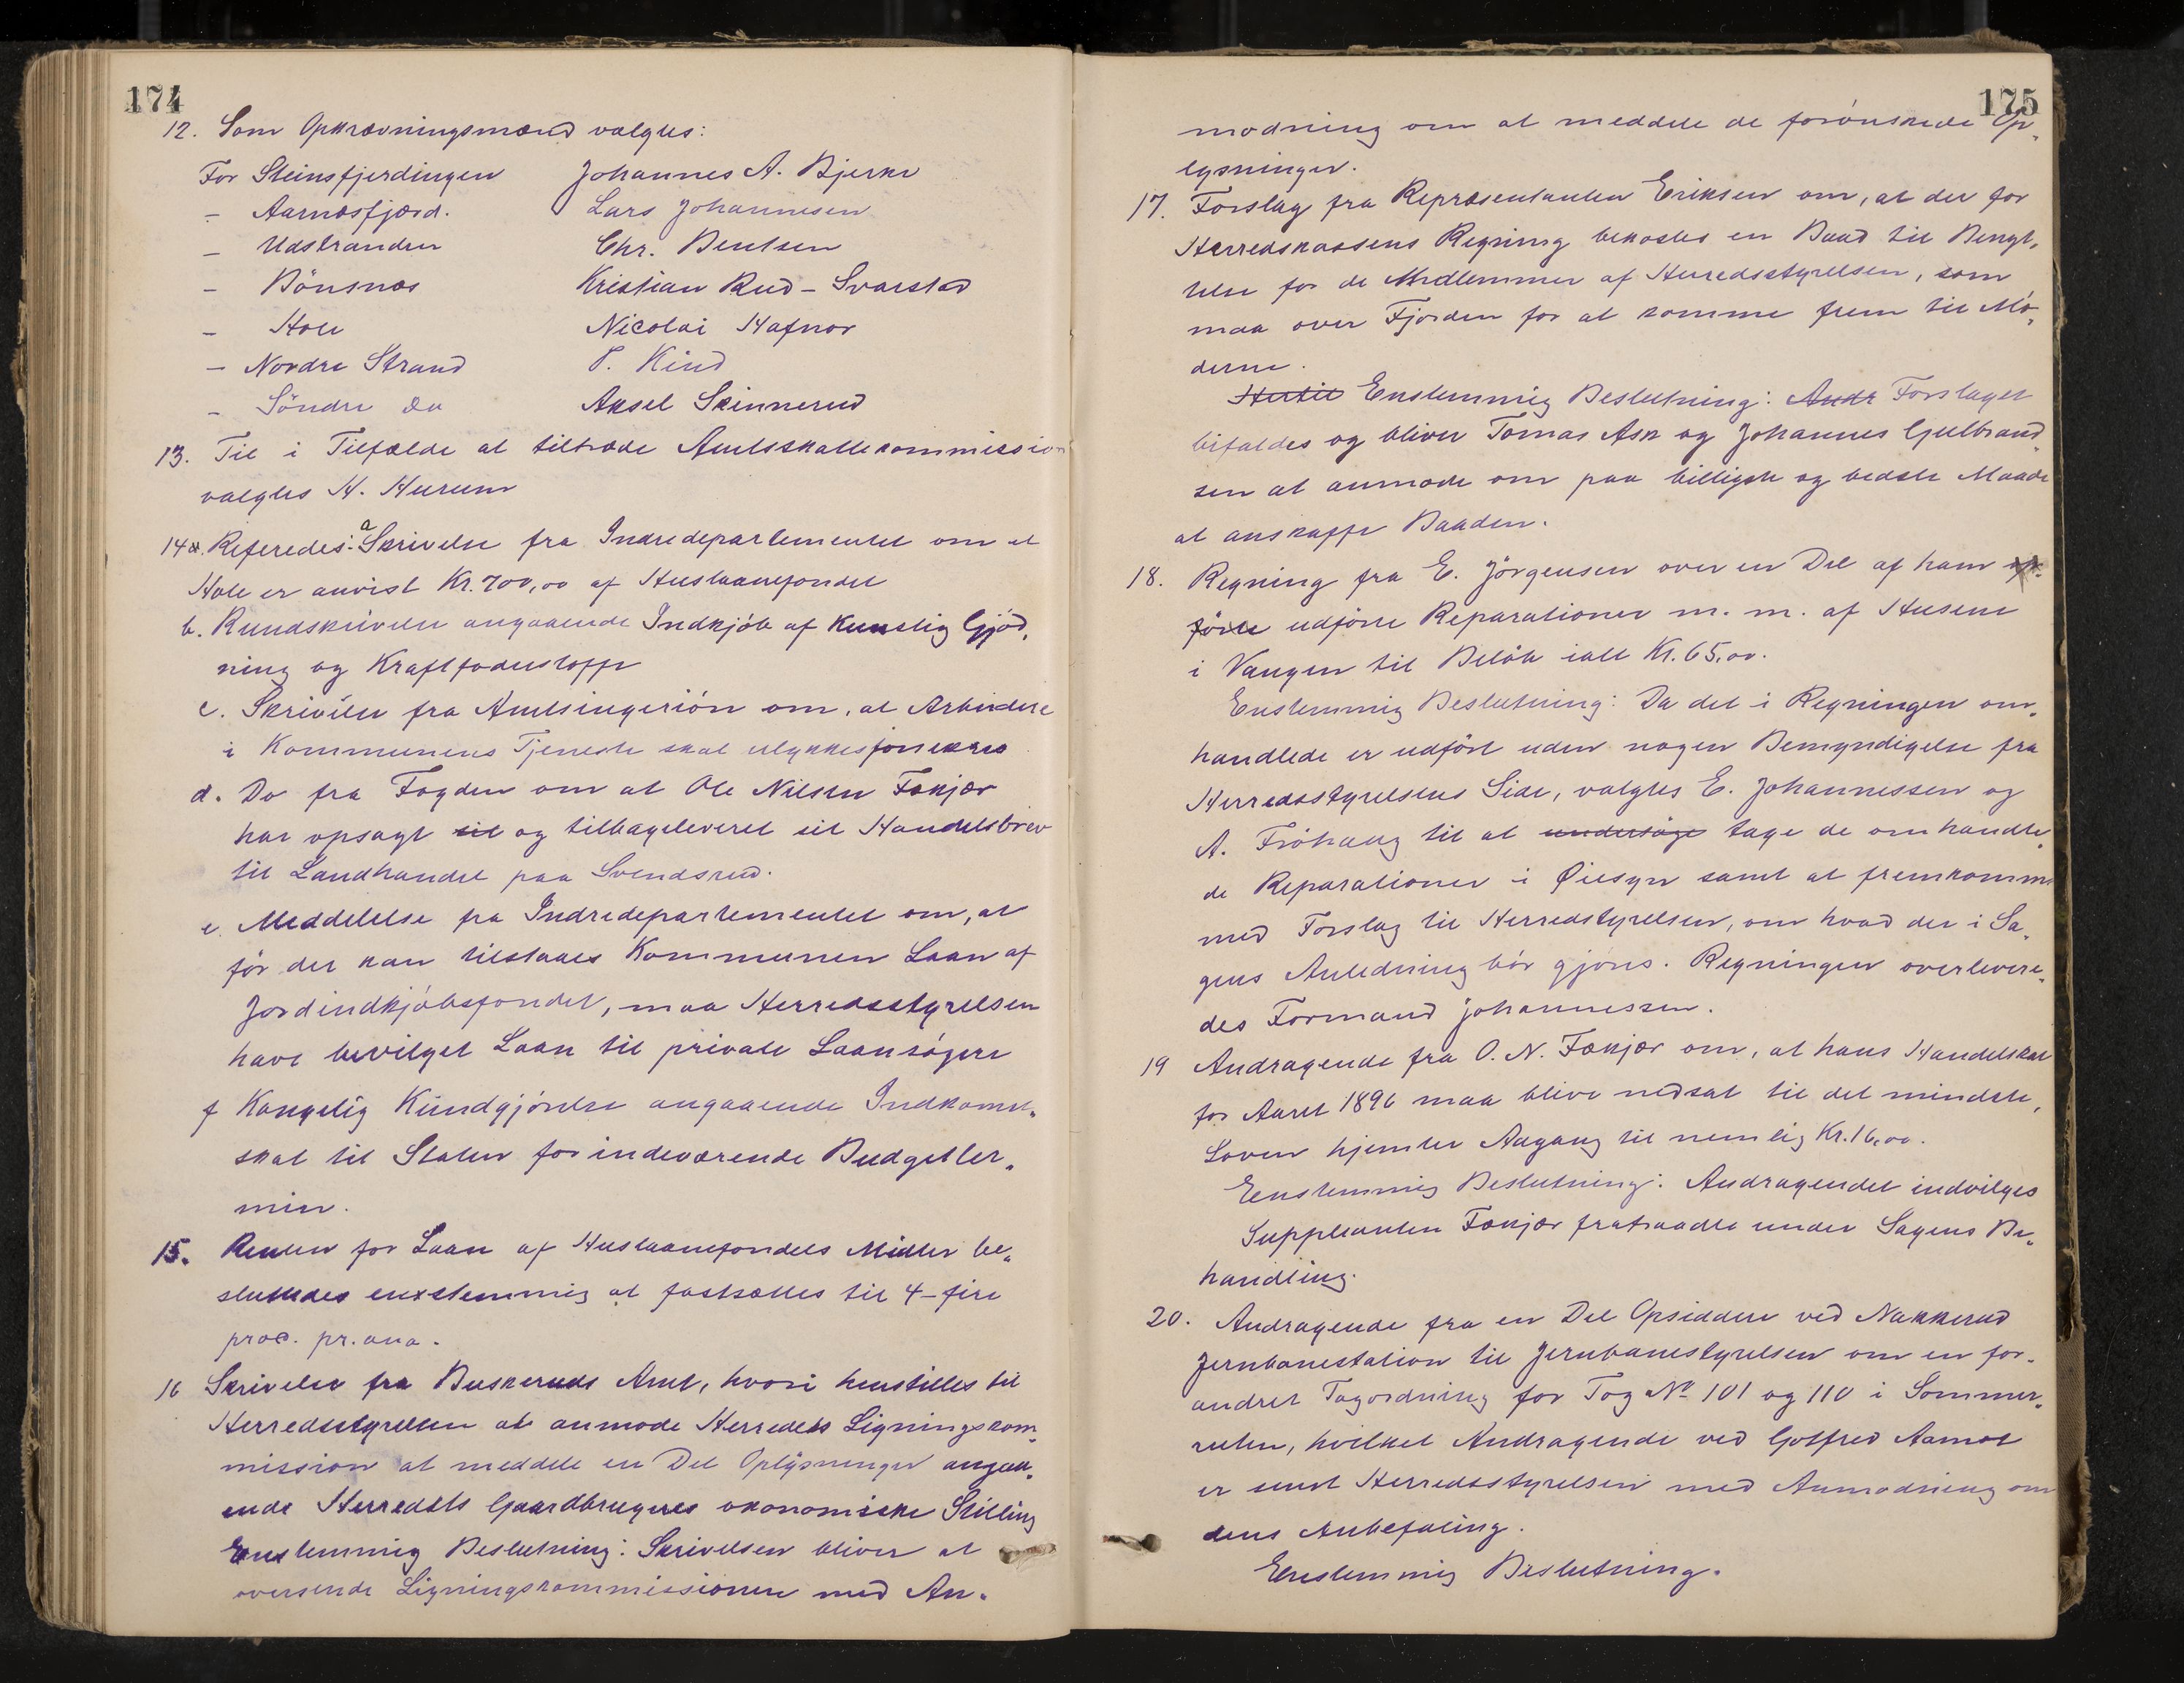 174
12. Som Opkrævningsmænd valgtes:
For Steinsfjerdingen Johannes A. Bjerke
– Aarnæsfjerd. Lars Johannesen
– Utstranden Chr. Bentsen
– Bönsnæs Kristian Rud – Svarstad
– Hole Nicolai Hafnor
– Nordre Strand T. Kind
– Söndre do Aksel Skinnerud
13. Til i Tilfælde at tiltræde Amtsskattekommission
valgtes H. Hurum
14. Referedes: a Skrivelse fra Indredepartementet om at
Hole er anvist Kr. 700,00 af Huslaanefondet
b. Rundskrivelse angaaende Indkjöb af Kunstig Gjöd„
ning og Kraftfoderstoffe
c. Skrivelse fra Amtsingeniören om, at Arbeidere
i Kommunens Tjeneste skal ulykkesforsikres
d. Do fra Fogden om at Ole Nilsen Fækjær
har opsagt sit og tilbageleveret sit Handelsbrev
til Landhandel paa Svendsrud.
e. Meddelelse fra Indredepartementet om, at
för der kan tilstaaes Kommunen Laan af
Jordindkjöbsfondet, maa Herredsstyrelsen
have bevilget Laan til private Laansögere
f Kongelig Kundgjörelse angaaende Indkomst„
skat til Staten for indeværende Budgetter„
min.
15. Renten for Laan af Huslaanefondets Midler be„
sluttedes enstemmig at fastsættes til 4 – fire
proc. pr. ano.
16 Skrivelse fra Buskeruds Amt, hvori henstilles til
Herredsstyrelsen at anmode Herredets Ligningskom„
mission at meddele en Del Oplysninger angaa„
ende Herredets Gaardbrugeres økonomiske Stilling
Enstemmig Beslutning: Skrivelsen bliver at
oversende Ligningskommissionen med An„
175
modning om at meddele de forönskede Op„
lysninger.
17. Forslag fra Repræsentanten Eriksen om, at der for
Herredskassens Regning bekostes en Baad til Benyt„
telse for de Medlemmer af Herredsstyrelsen, som
maa over Fjorden for at komme frem til Mö„
derne.
Hertil Enstemmig Beslutning: Andr Forslaget
bifaldes og bliver Tomas Ask og Johannes Gulbrand„
sen at anmode om paa billigste og bedste Maade
at anskaffe Baaden.
18. Regning fra E. Jörgensen over en Del af ham op„
förte udförte Reparationer m. m. af Husene
i Vangen til Belöb ialt Kr. 65,00.
Enstemmig Beslutning: Da det i Regningen om„
handlede er udfört uden nogen Bemyndigelse fra
Herredsstyrelsens Side, valgtes E. Johannessen og
A. Fröhaug til at undersöge tage de omhandle„
de Reparationer i Øiesyn samt at fremkomme
med Forslag til Herredstyrelsen, om hvad der i Sa„
gens Anledning bör gjöres. Regningen overlevere„
des Formand Johannessen.
19 Andragende fra O. N. Fækjær om, at hans Handelskat
for Aaret 1896 maa blive nedsat til det mindste,
Loven hjemler Adgang til nemlig Kr. 16,00.
Enstemmig Beslutning: Andragendet indvilges
Suppleanten Fækjær fratraadte under Sagens Be„
handling.
20. Andragende fra en Del Opsiddere ved Nakkerud
Jernbanestation til Jernbanestyrelsen om en for„
andret Togordning for Tog No 101 og 110 i Sommer„
ruten, hvilket Andragende ved Gotfred Aamot
er sendt Herredsstyrelsen med Anmodning om
dens Anbefaling.
Enstemmig Beslutning.